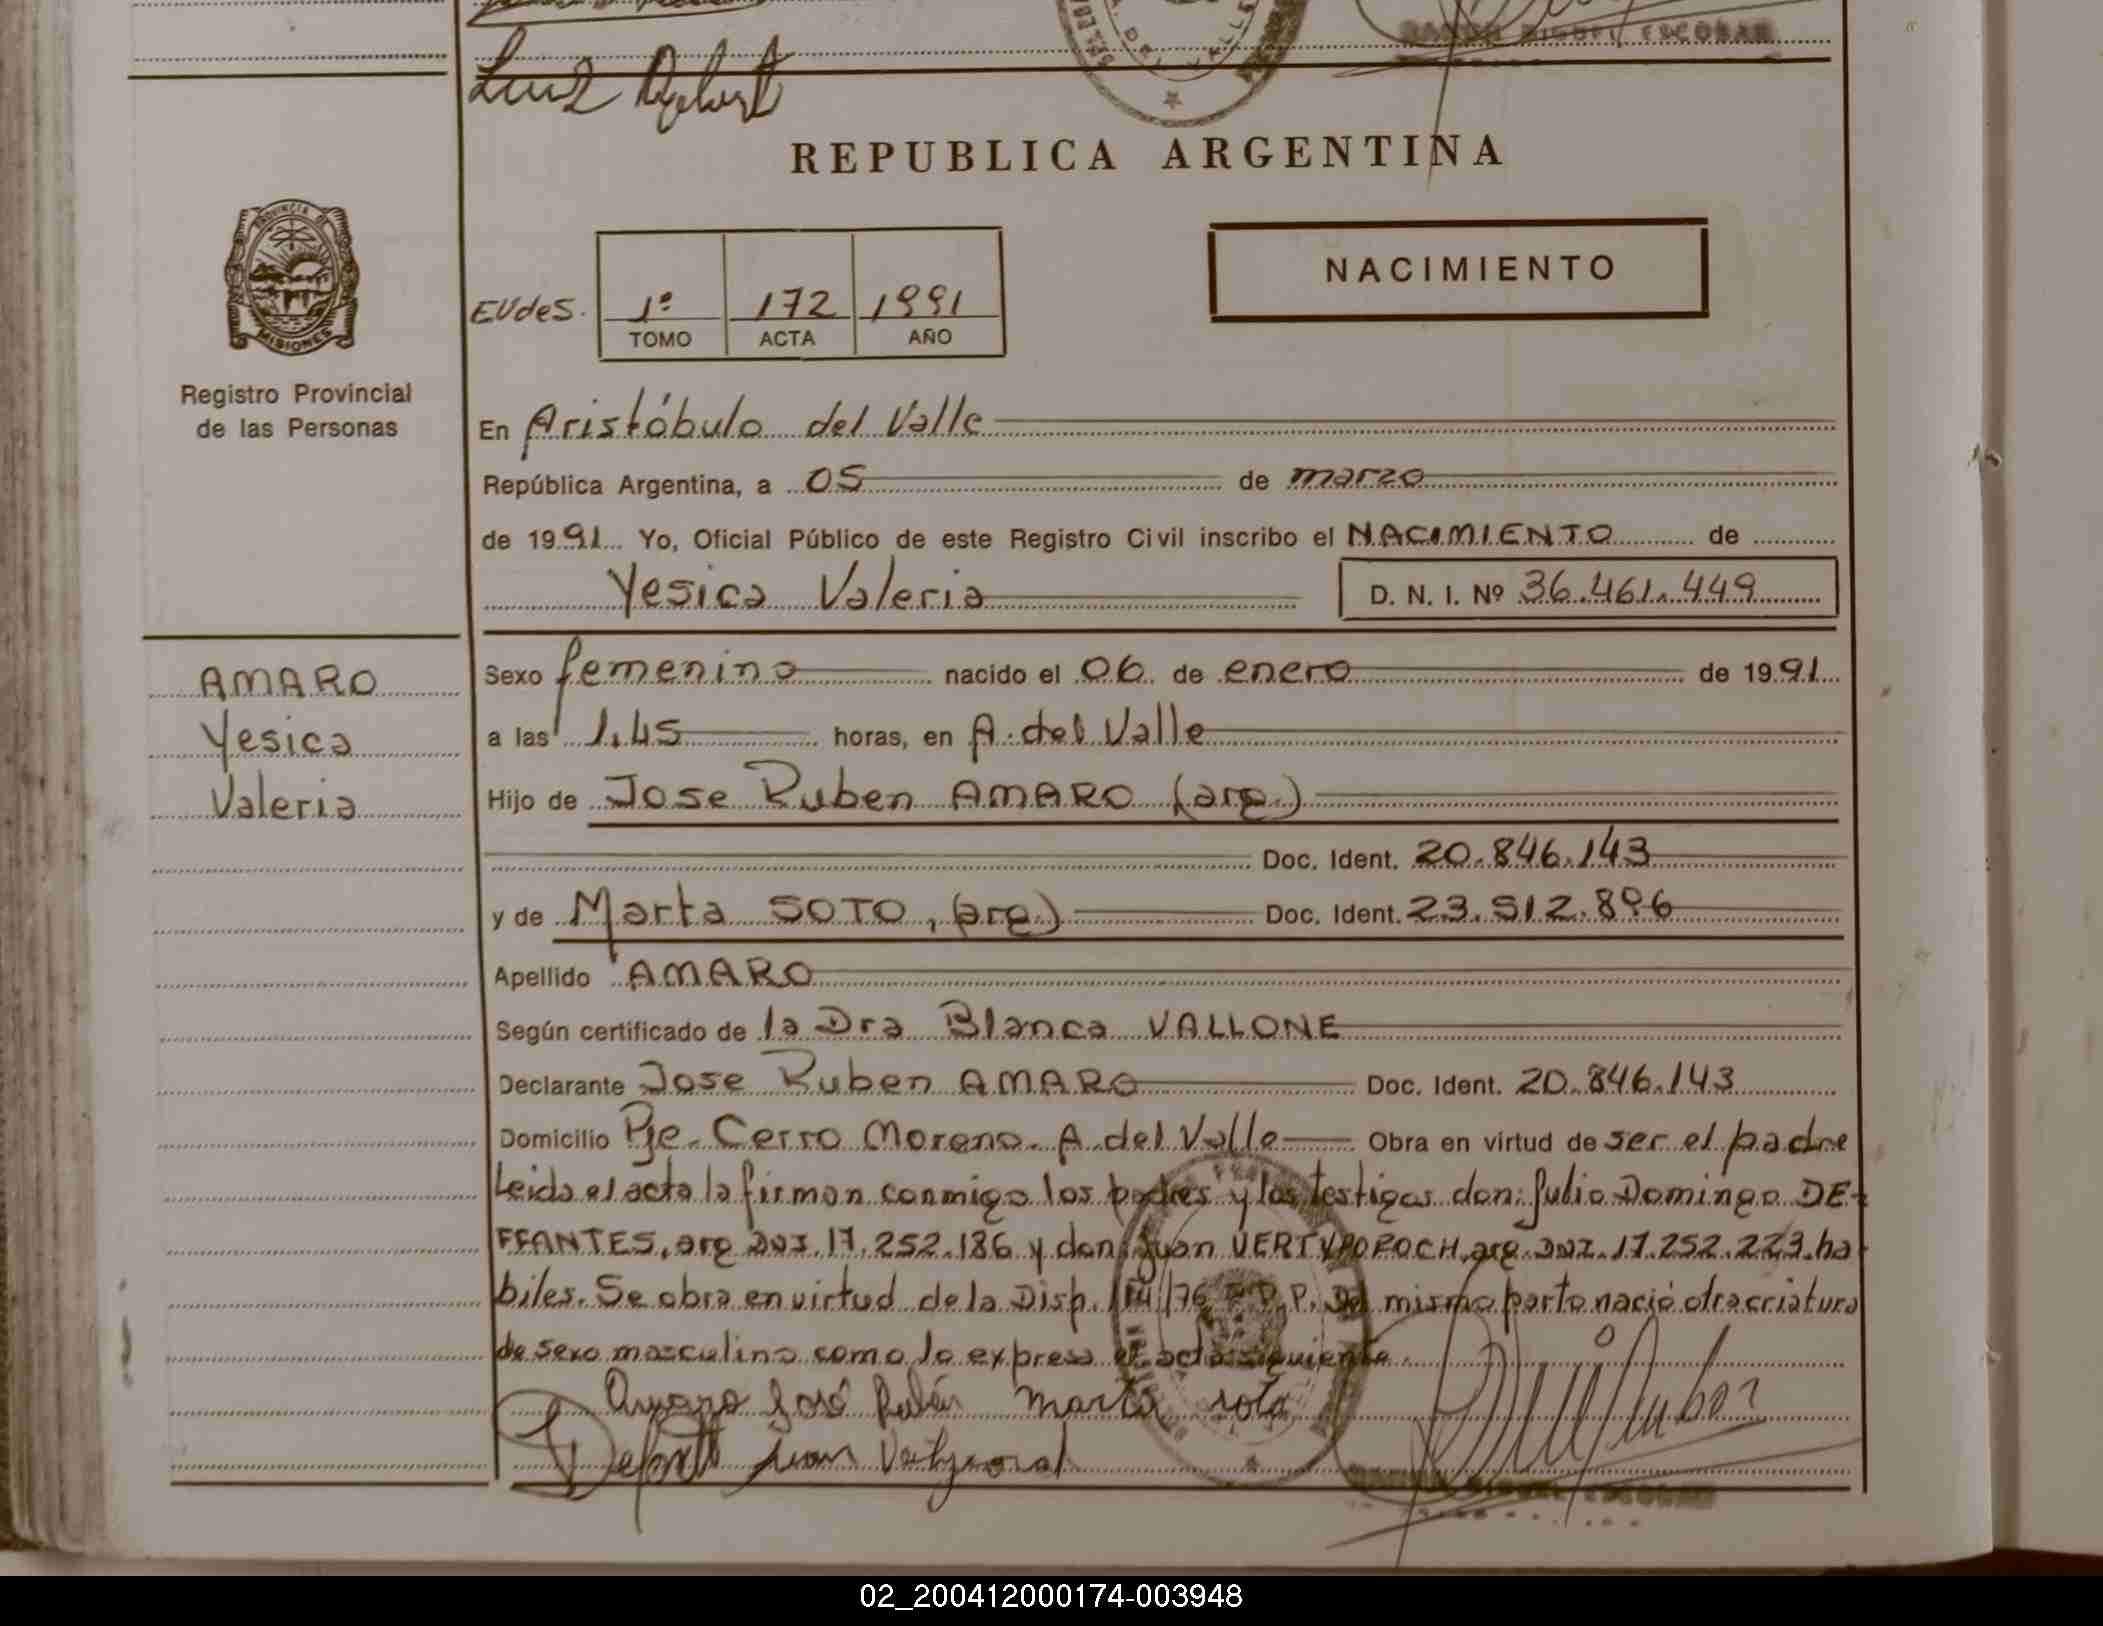 Luis
REPUBLICA ARGENTINA
PROVINCIA DE
MISIONES
Registro Provincial
de las Personas
EUdeS. 1º 172 1991
TOMO ACTA AÑO
NACIMIENTO
En Aristóbulo del Valle
República Argentina, a 05 de marzo
de 1991 Yo, Oficial Público de este Registro Civil inscribo el NACIMIENTO de
Yesica Valeria D. N. I. Nº 36.461.449
AMARO
Yesica
Valeria
Sexo femenino nacido el 06 de enero de 1991
a las 1.45 horas, en A. del Valle
Hijo de Jose Ruben AMARO (arg.)
Doc. Ident. 20.846.143
y de Marta SOTO, (arg) Doc. Ident. 23.512.896
Apellido AMARO
Según certificado de la Dra Blanca VALLONE
Declarante Jose Ruben AMARO Doc. Ident. 20.846.143
Domicilio Pje. Cerro Moreno. A. del Valle Obra en virtud de ser el padre
Leida el acta la firman conmigo los padres y los testigos don: Julio Domingo DE-
FFANTES, arg DNI 17.252.186 y don Juan arg. DNI. 17.252.223. ha
biles. Se obra en virtud de la Disp. /76 Del mismo parto nació otra criatura
de sexo masculino como lo expresa el acta siguiente.
Amaro José Rubén Marta soto
Juan
MIGUEL ESCOBAR
02_200412000174-003948